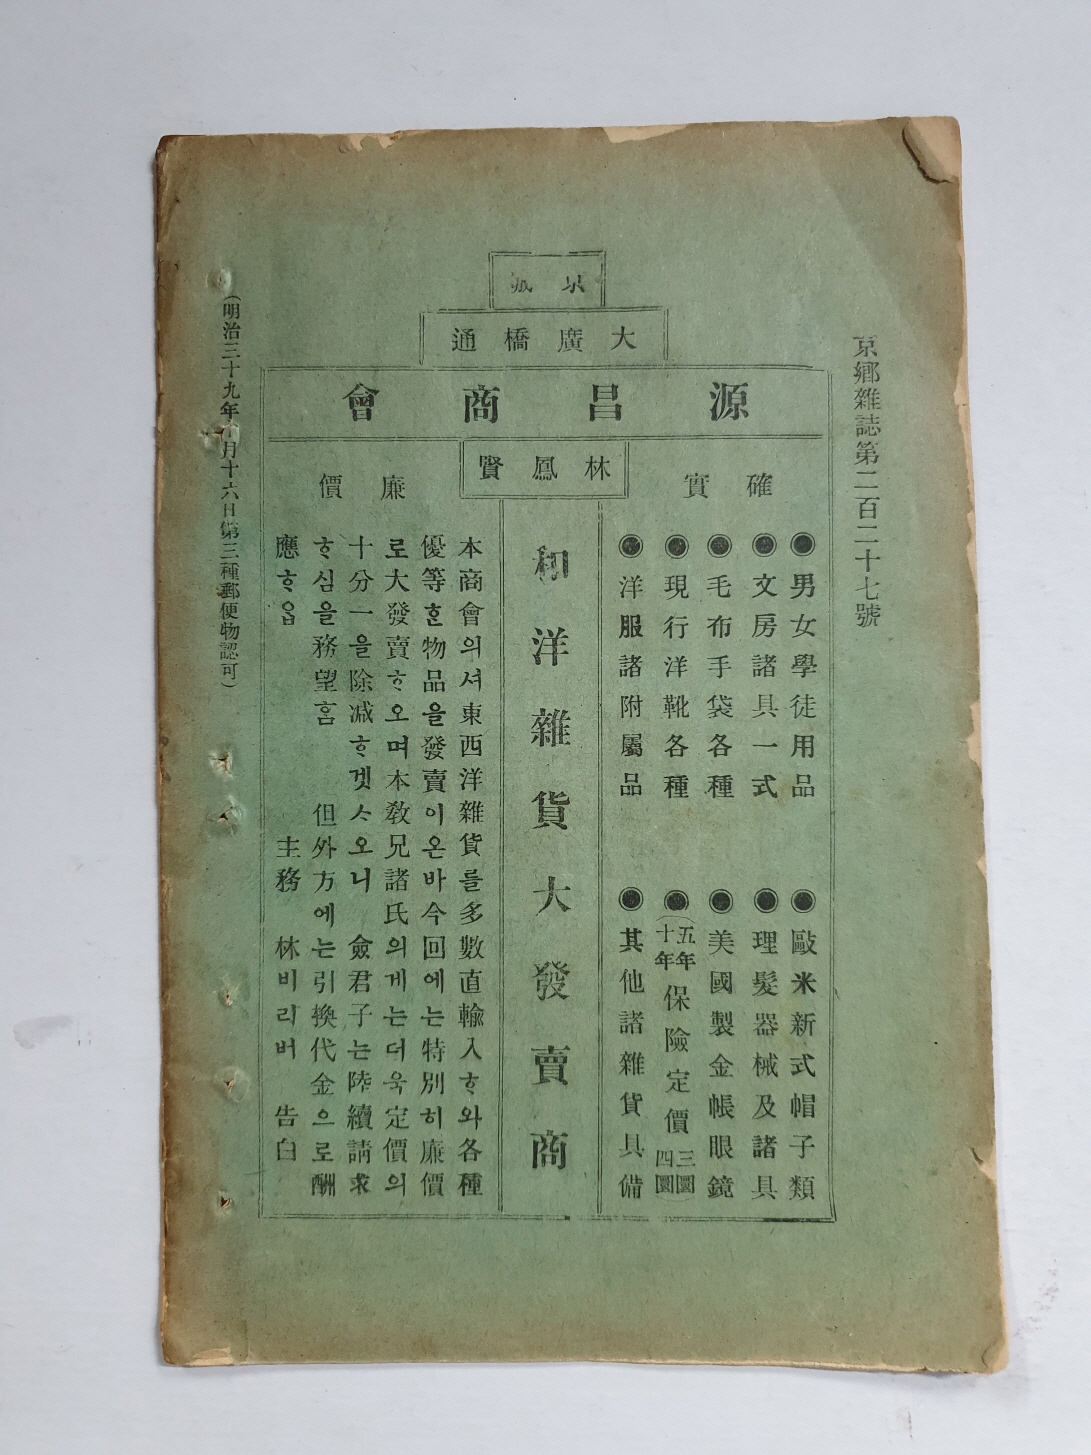 京鄉雜誌第二百二十七號
京城
大廣橋通
源昌商會
林鳳賢
確實
廉價
◉男女學徒用品
◉文房諸具一式
◉毛布手袋各種
◉現行洋靴各種
◉洋服諸附屬品
◉歐米新式帽子類
◉理髮器械及諸具
◉美國製金帳眼鏡
◉(五年十年保險定價三圜四圜
◉其他諸雜貨具備
和洋雜貨大發賣商
本商會의셔東西洋雜貨를多數直輸入ᄒᆞ와各種
優等ᄒᆞᆫ物品을發賣이온바今回에는特別히廉價
로大發賣ᄒᆞ오며本敎兄諸氏의게는더욱定價의
十分一을除减ᄒᆞ겟ᄉᆞ오니 僉君子는陸續請求
ᄒᆞ심을務望홈 但外方에는引換代金으로酬
應ᄒᆞᄋᆞᆸ
主務 林비리버 告白
(明治三十九年十月十六日第三種郵便物認可)